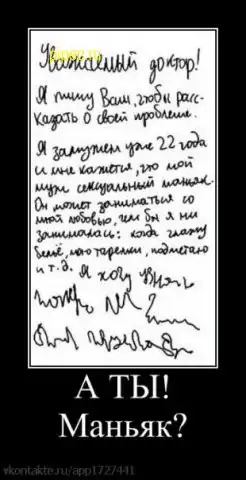 Уважаемый доктор!
Я пишу Вам, чтобы рас-
казать о своей проблеме.
Я замужем уже 22 года
и мне кажется, что мой
муж сексуальный маньяк.
Он может заниматься со
мной любовью, чем бы я ни
занималась: когда глажу
бельё, мою тарелки, подметаю
и т.д. Я хочу узнать
А ТЫ!
Маньяк?
vkontakte.ru/app1727441